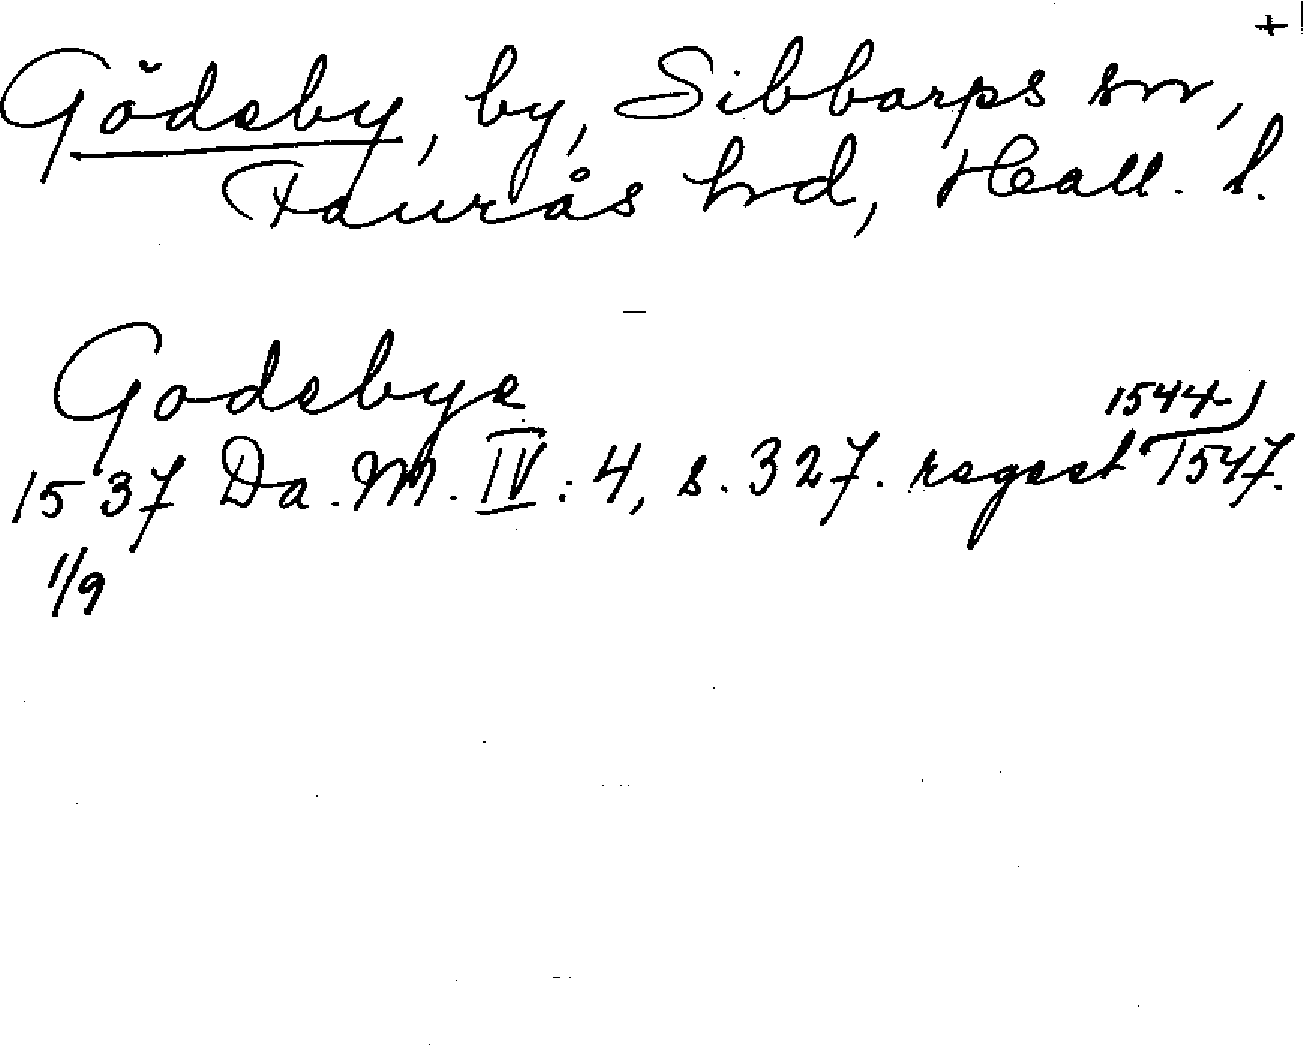 +
Gödeby, by, Sibbarps sn,
Faurås hd, Hall. l.
Godebye
1544
1537 Da. M. IV: 4, s. 327. regest 1547.
1/9